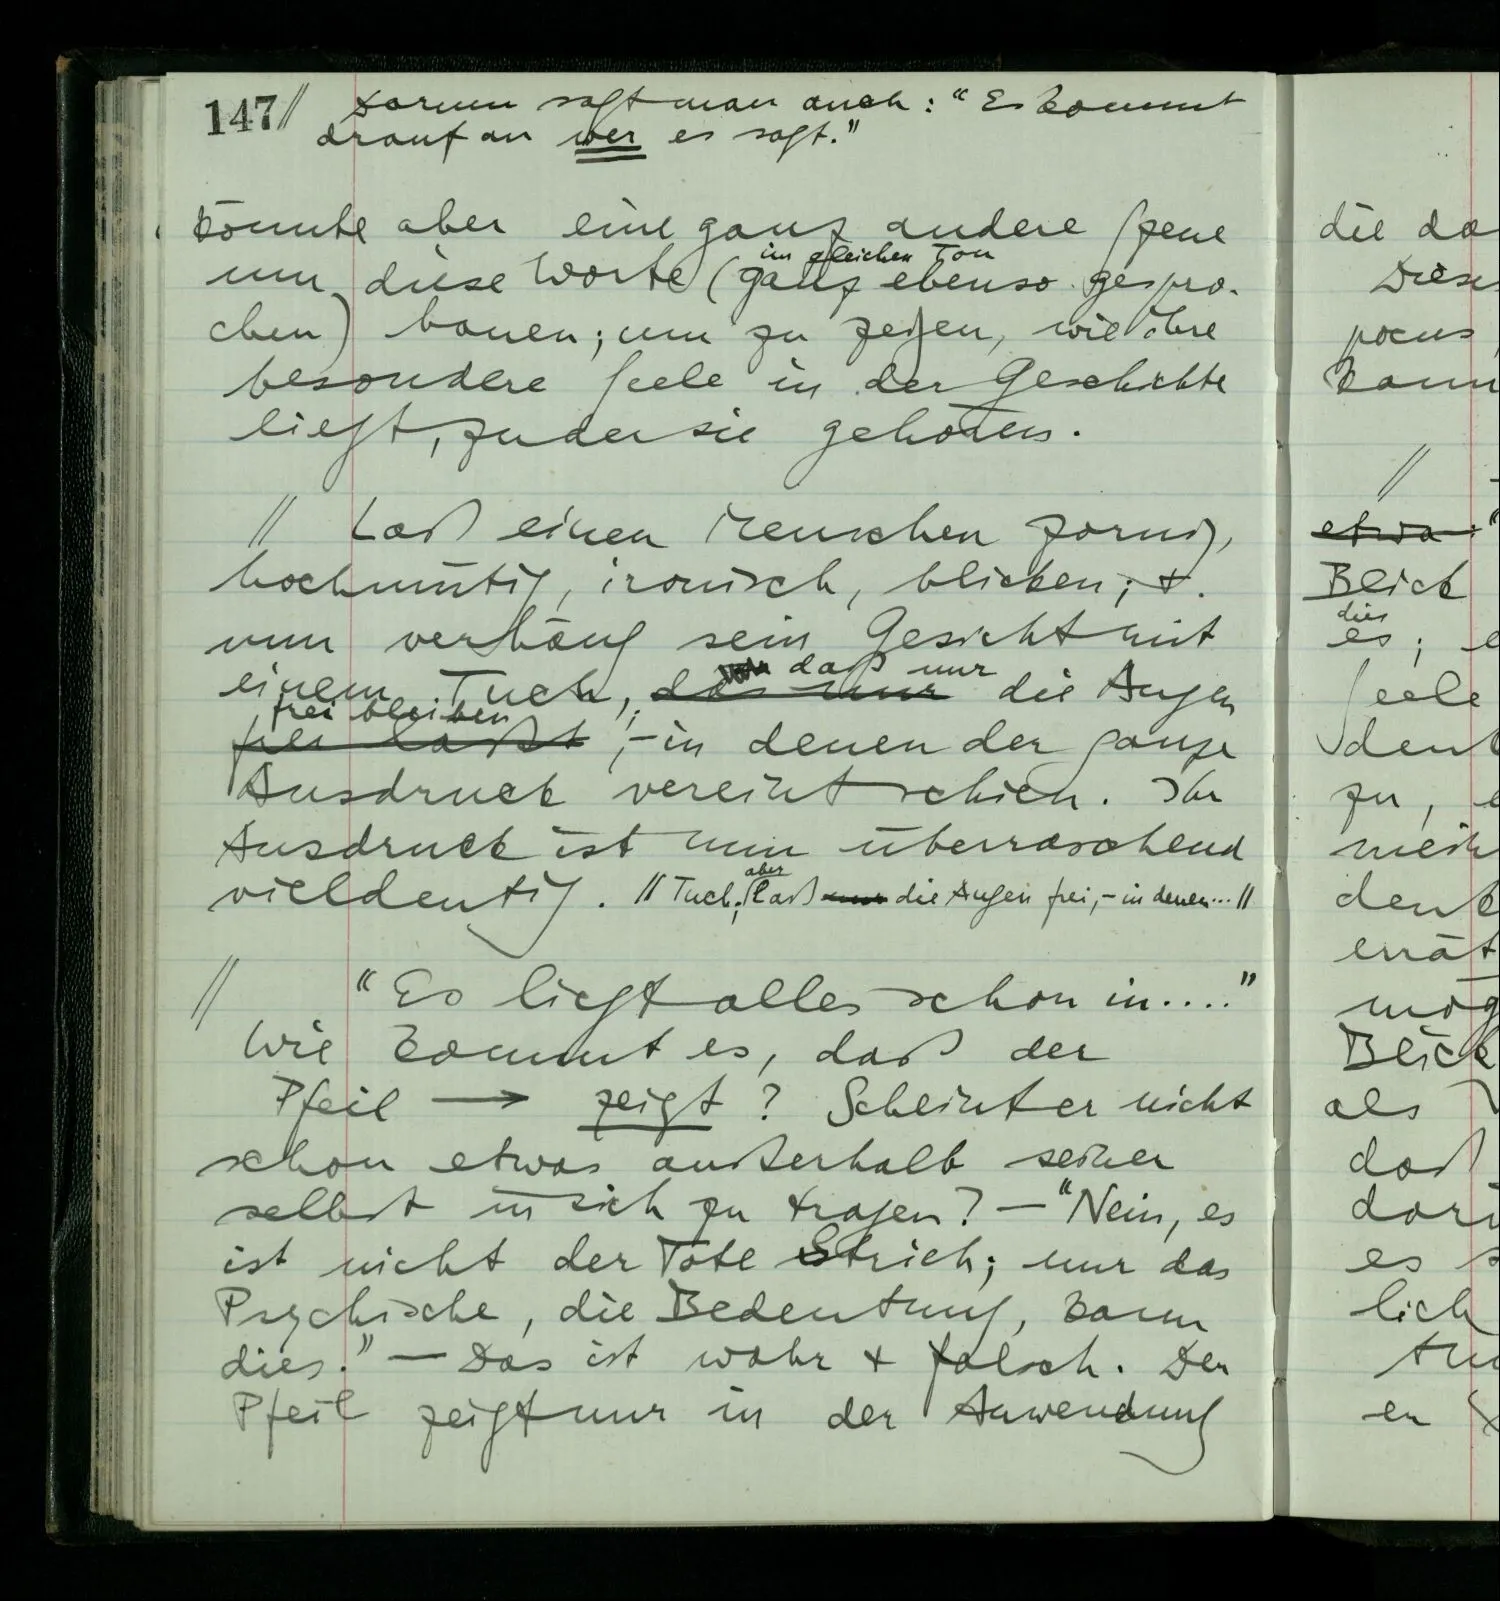 147 // Darum sagt man auch: "Es kommt
drauf an wer es sagt."
könnte aber eine ganz andere Szene
im gleichen Ton
um diese Worte (ganz ebenso gespro-
chen) bauen; um zu zeigen, wie ihre
besondere Seele in der Geschichte
liegt, zu der sie gehören.
// Laß einen Menschen zornig,
hochmütig, ironisch, blicken; +
nun verhäng sein Gesicht mit
daß nur
einem Tuch, das nur die Augen
frei bleiben
frei läßt ;– in denen der ganze
Ausdruck vereint schien. Ihr
Ausdruck ist nun überraschend
aber
vieldeutig. // Tuch; laß nur die Augen frei,– in denen... //
// "Es liegt alles schon in...."
Wie kommt es, daß der
Pfeil → zeigt? Scheint er nicht
schon etwas außerhalb seiner
selbst in sich zu tragen? — "Nein, es
ist nicht der Tote Strich; nur das
Psychische, die Bedeutung, kann
dies." — Das ist wahr + falsch. Der
Pfeil zeigt nur in der Anwendung
die
Diese
pocus
kann
//
etwa "
Blick
dies
es;
Seele
zu,
mein
denk
errät
mög
Blick
als
daß
es s
lich
er